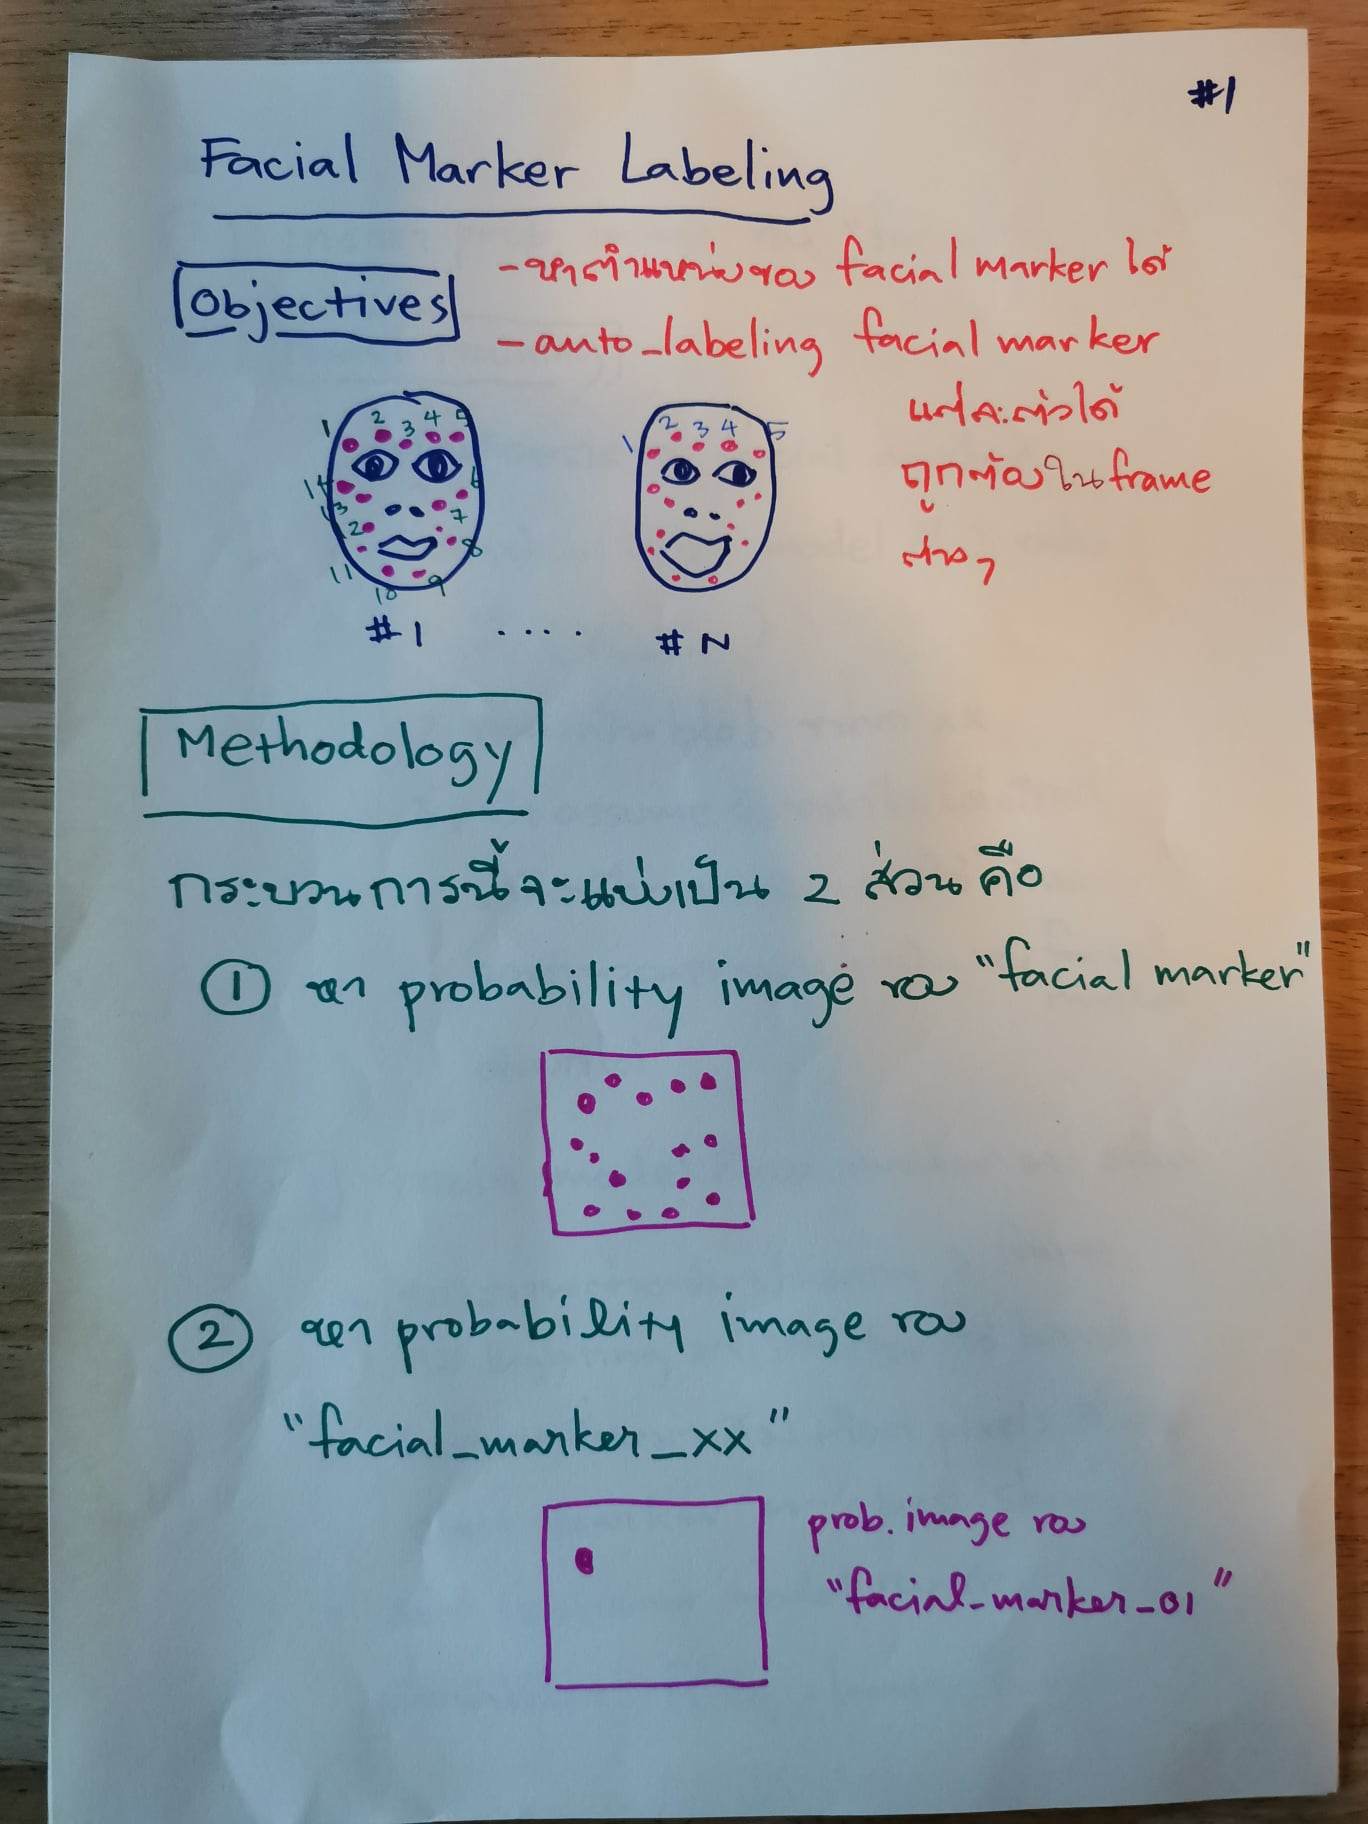 #1
Facial Marker Labeling
Objectives
- หาตำแหน่งของ facial marker ได้
- auto_labeling facial marker
แต่ละตัวได้
ถูกต้องในframe
ต่างๆ
1 2 3 4 5
14 6
13 7
12 8
11 10 9
1 2 3 4 5
#1 .... #N
Methodology
กระบวนการนี้จะแบ่งเป็น 2 ส่วน คือ
① หา probability image ของ "facial marker"
② หา probability image ของ
"facial_marker_xx"
prob. image ของ
"facial_marker_01"